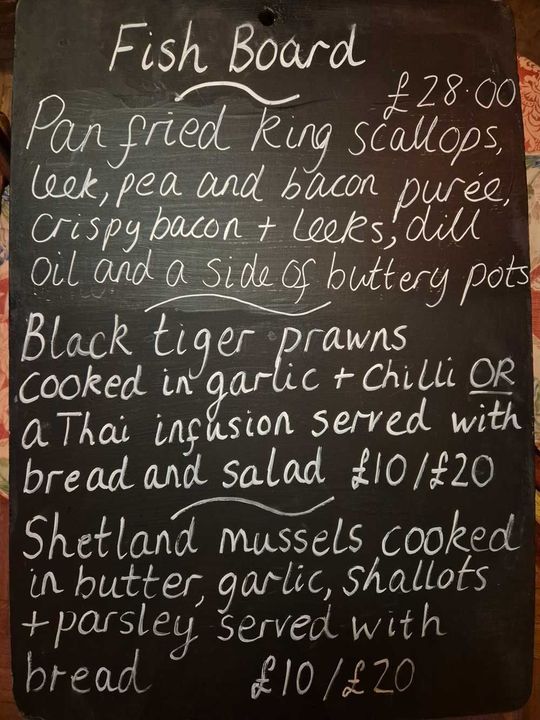 Fish Board
£28.00
Pan fried king scallops,
leek, pea and bacon purée,
crispy bacon + leeks, dill
oil and a side of buttery pots
Black tiger prawns
cooked in garlic + chilli OR
a Thai infusion served with
bread and salad £10/£20
Shetland mussels cooked
in butter, garlic, shallots
+ parsley served with
bread £10/£20